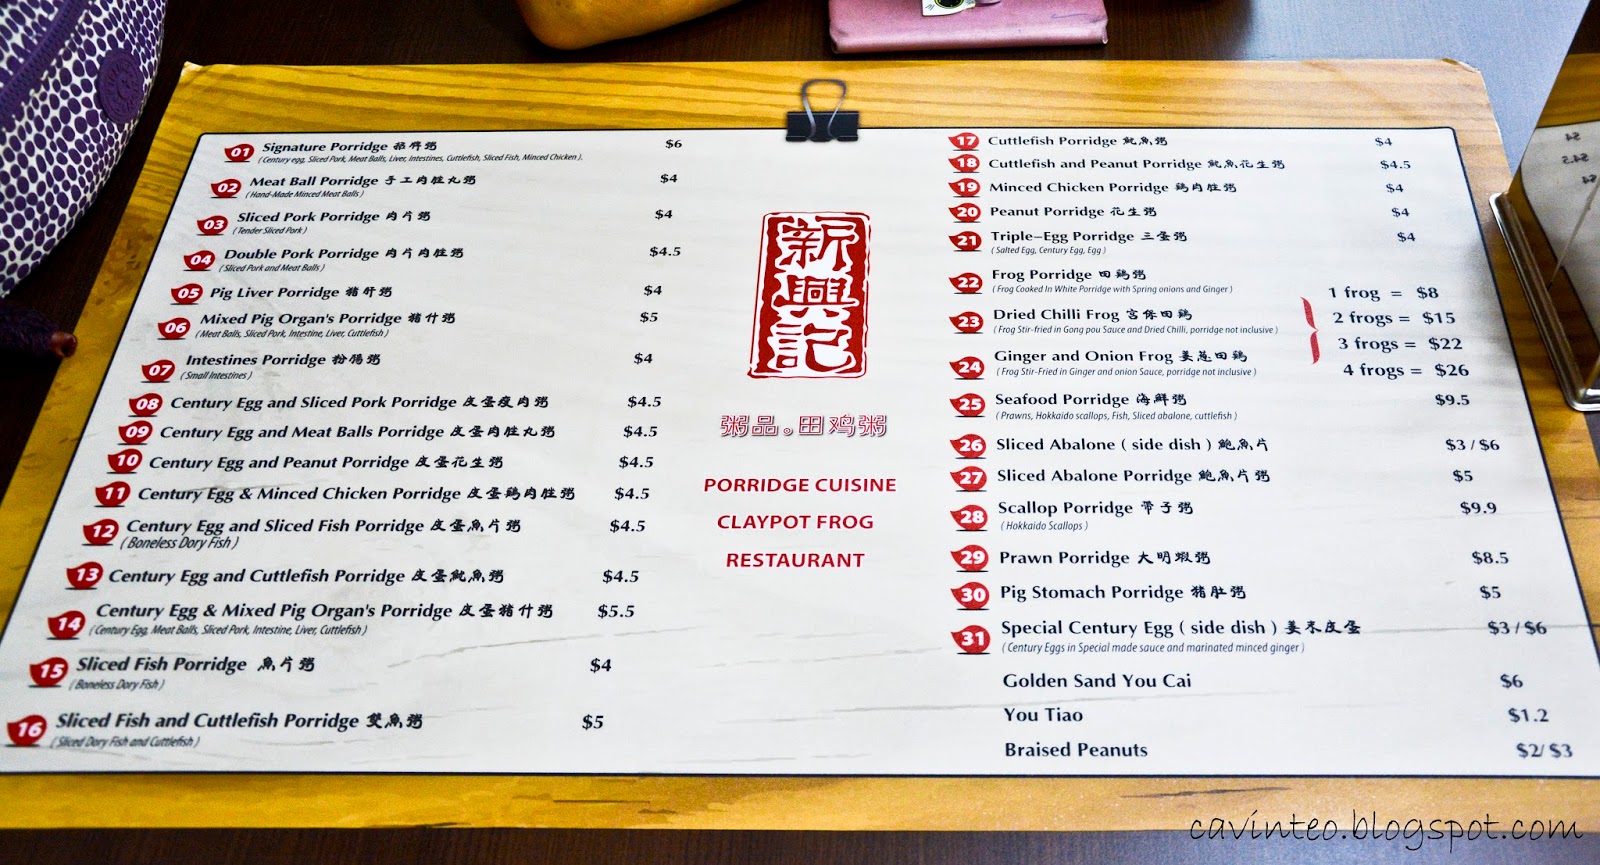 01 Signature Porridge 招牌粥 $6
( Century egg, Sliced Pork, Meat Balls, Liver, Intestines, Cuttlefish, Sliced Fish, Minced Chicken ).
02 Meat Ball Porridge 手工肉脞丸粥 $4
( Hand-Made Minced Meat Balls )
03 Sliced Pork Porridge 肉片粥 $4
( Tender Sliced Pork )
04 Double Pork Porridge 肉片肉脞粥 $4.5
( Sliced Pork and Meat Balls )
05 Pig Liver Porridge 猪肝粥 $4
06 Mixed Pig Organ's Porridge 猪什粥 $5
( Meat Balls, Sliced Pork, Intestine, Liver, Cuttlefish )
07 Intestines Porridge 粉肠粥 $4
( Small Intestines )
08 Century Egg and Sliced Pork Porridge 皮蛋瘦肉粥 $4.5
09 Century Egg and Meat Balls Porridge 皮蛋肉脞丸粥 $4.5
10 Century Egg and Peanut Porridge 皮蛋花生粥 $4.5
11 Century Egg & Minced Chicken Porridge 皮蛋鸡肉脞粥 $4.5
12 Century Egg and Sliced Fish Porridge 皮蛋魚片粥 $4.5
( Boneless Dory Fish )
13 Century Egg and Cuttlefish Porridge 皮蛋魷魚粥 $4.5
14 Century Egg & Mixed Pig Organ's Porridge 皮蛋猪什粥 $5.5
( Century Egg, Meat Balls, Sliced Pork, Intestine, Liver, Cuttlefish )
15 Sliced Fish Porridge 魚片粥 $4
( Boneless Dory Fish )
16 Sliced Fish and Cuttlefish Porridge 雙魚粥 $5
( Sliced Dory Fish and Cuttlefish )
新興記
粥品。田鸡粥
PORRIDGE CUISINE
CLAYPOT FROG
RESTAURANT
17 Cuttlefish Porridge 魷魚粥 $4
18 Cuttlefish and Peanut Porridge 魷魚花生粥 $4.5
19 Minced Chicken Porridge 鸡肉脞粥 $4
20 Peanut Porridge 花生粥 $4
21 Triple-Egg Porridge 三蛋粥 $4
( Salted Egg, Century Egg, Egg )
22 Frog Porridge 田鸡粥
( Frog Cooked In White Porridge with Spring onions and Ginger )
23 Dried Chilli Frog 宫保田鸡
( Frog Stir-fried in Gong pou Sauce and Dried Chilli, porridge not inclusive )
24 Ginger and Onion Frog 姜葱田鸡
( Frog Stir-Fried in Ginger and onion Sauce, porridge not inclusive )
1 frog = $8
2 frogs = $15
3 frogs = $22
4 frogs = $26
25 Seafood Porridge 海鮮粥 $9.5
( Prawns, Hokkaido scallops, Fish, Sliced abalone, cuttlefish )
26 Sliced Abalone ( side dish ) 鮑魚片 $3 / $6
27 Sliced Abalone Porridge 鮑魚片粥 $5
28 Scallop Porridge 帶子粥 $9.9
( Hokkaido Scallops )
29 Prawn Porridge 大明蝦粥 $8.5
30 Pig Stomach Porridge 猪肚粥 $5
31 Special Century Egg ( side dish ) 姜末皮蛋 $3 / $6
( Century Eggs in Special made sauce and marinated minced ginger )
Golden Sand You Cai $6
You Tiao $1.2
Braised Peanuts $2/ $3
cavinteo.blogspot.com